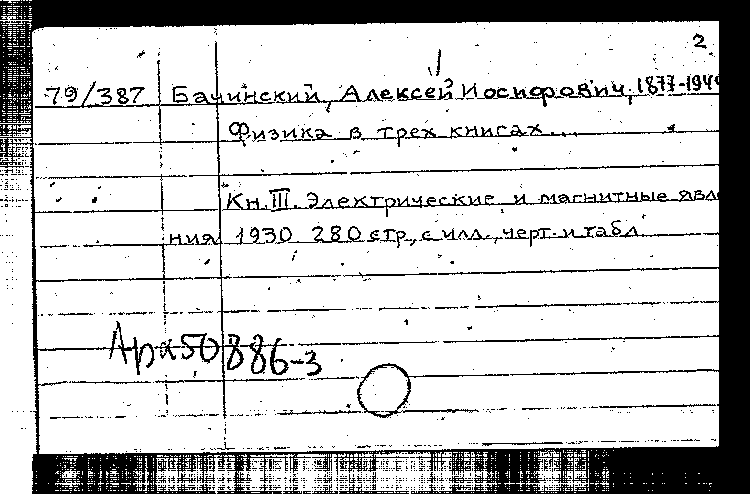 2
79/387 Бачинский, Алексей Иосифович, 1877-1944
Физика в трех книгах...
Кн. III. Электрические и магнитные явле
ния 1930 280 стр., с илл., черт. и табл.
50886-3